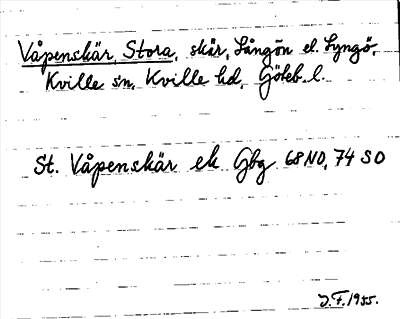 Våpenskär, Stora, skär, Långön el. Lyngö,
Kville sn, Kville hd, Göteb. l.
St. Våpenskär ek Gbg 68 NO, 74 SO
J.F. 1955.